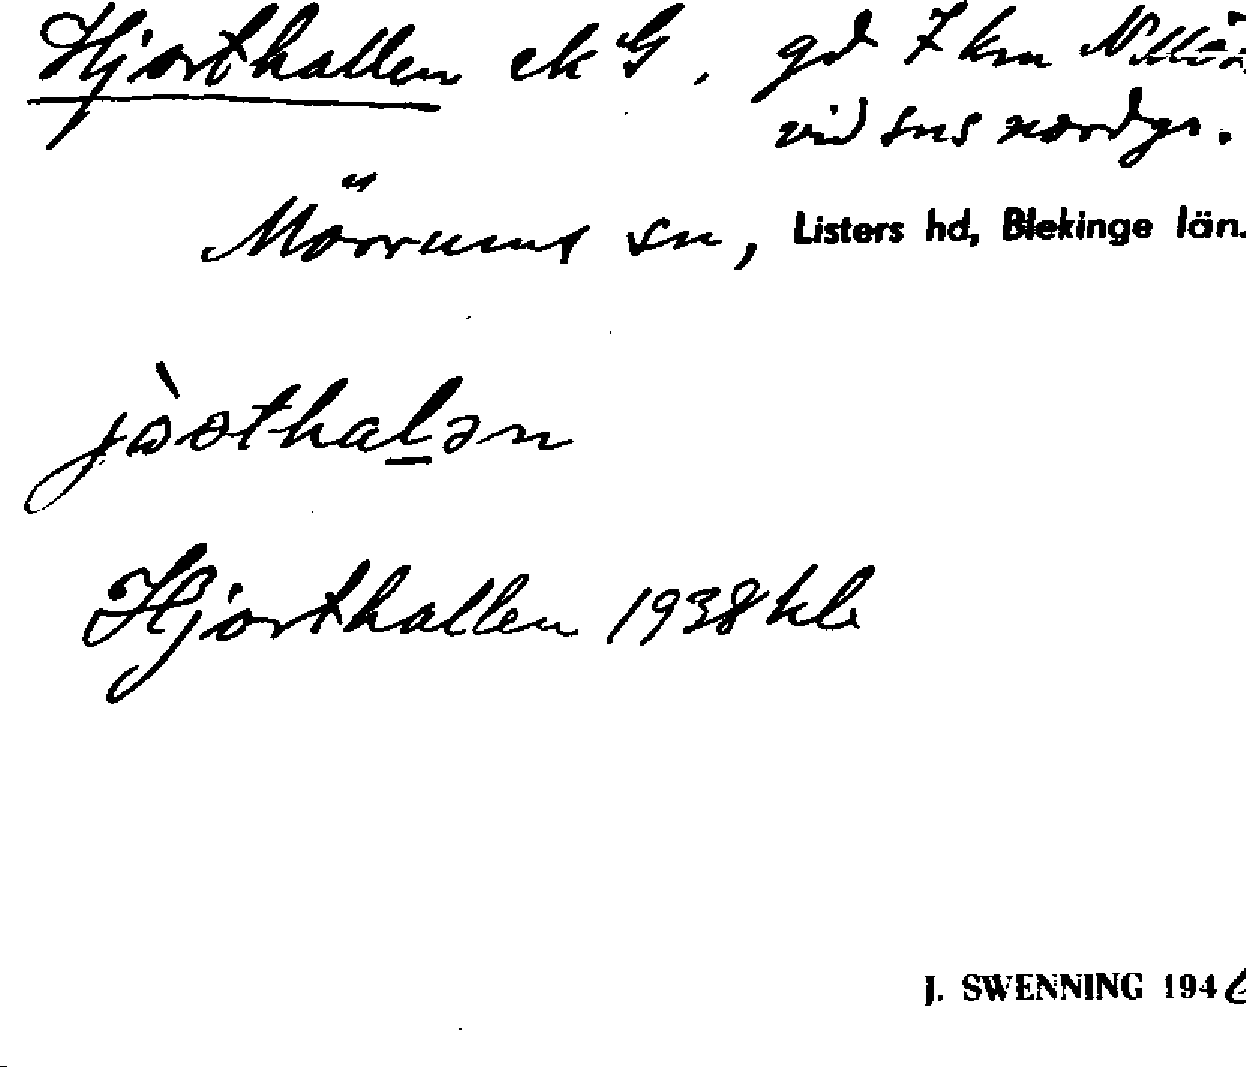 Hjorthallen ek G. gd 7 km N
vid sns nordgr.
Mörrums sn, Listers hd, Blekinge län.
Hjorthallen 1938 kb
J. SWENNING 1946